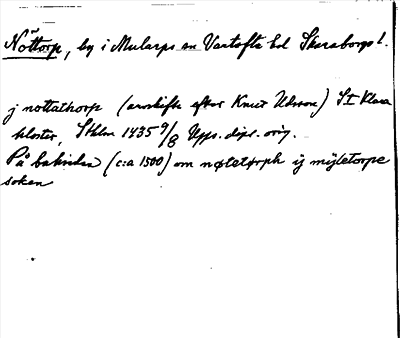 Nöttorp, by i Mularps sn Vartofta hd Skaraborgs l.
j nottathorp (arvskifte efter Knut Udsson) S:t Klara
kloster, Sthlm 1435 9/8 Upps. dipl. orig.
På baksidan (c:a 1500) om nøtetørph ij mijletorpe
soken